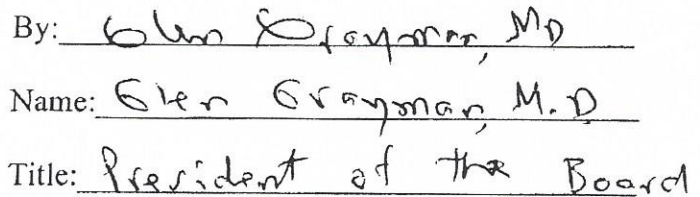 By: Glen Grayman, MD
Name: Glen Grayman, M.D
Title: President of the Board